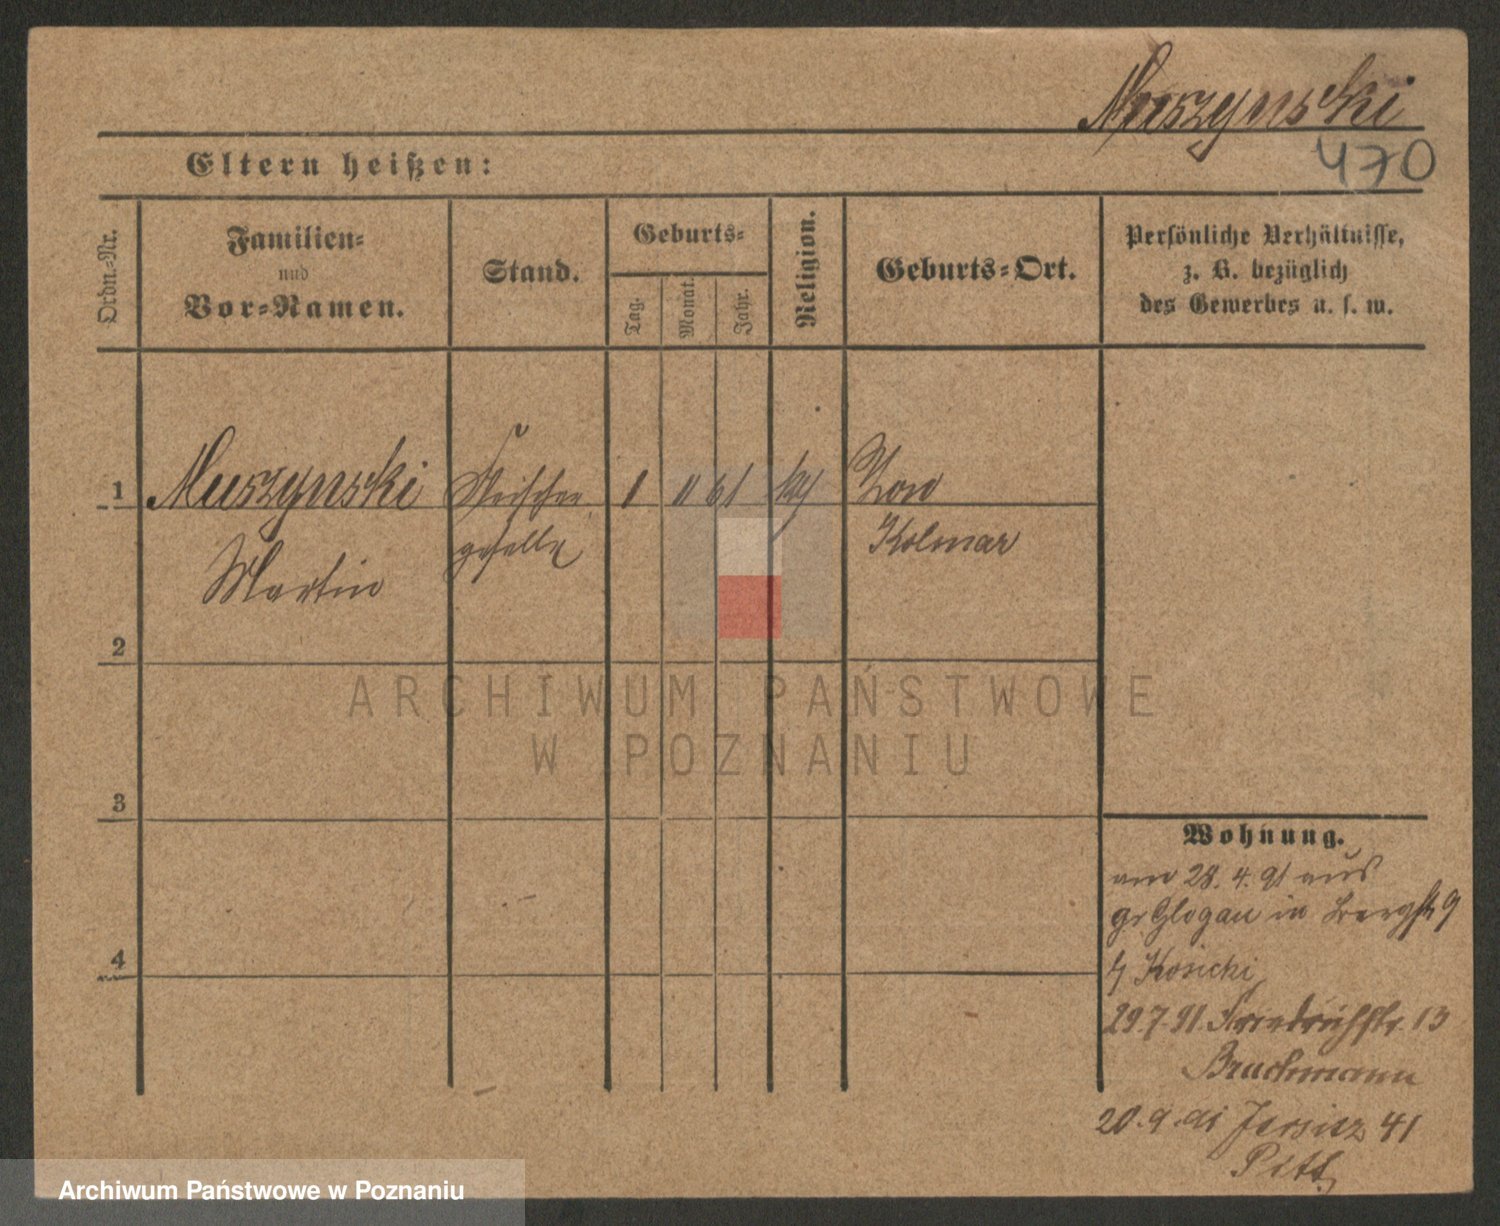 Muszynski
470
Eltern heißen:
Ordn.-Nr.
Familien-
und
Vor-Namen.
Stand.
Geburts-
Tag.
Monat.
Jahr.
Religion.
Geburts-Ort.
Persönliche Verhältnisse,
z. B. bezüglich
des Gewerbes u. s. w.
1
Muszynski
Martin
Fleischer
geselle
1
11
61
Kolmar
2
3
4
ARCHIWUM PAŃSTWOWE
W POZNANIU
Wohnung.
am 28. 4. 91 aus
gr Glogau in Bergstr 9
Kosicki
29.7.91 Friedrichstr. 13
Bruchmann
20.9.91 Jersitz 41
Archiwum Państwowe w Poznaniu